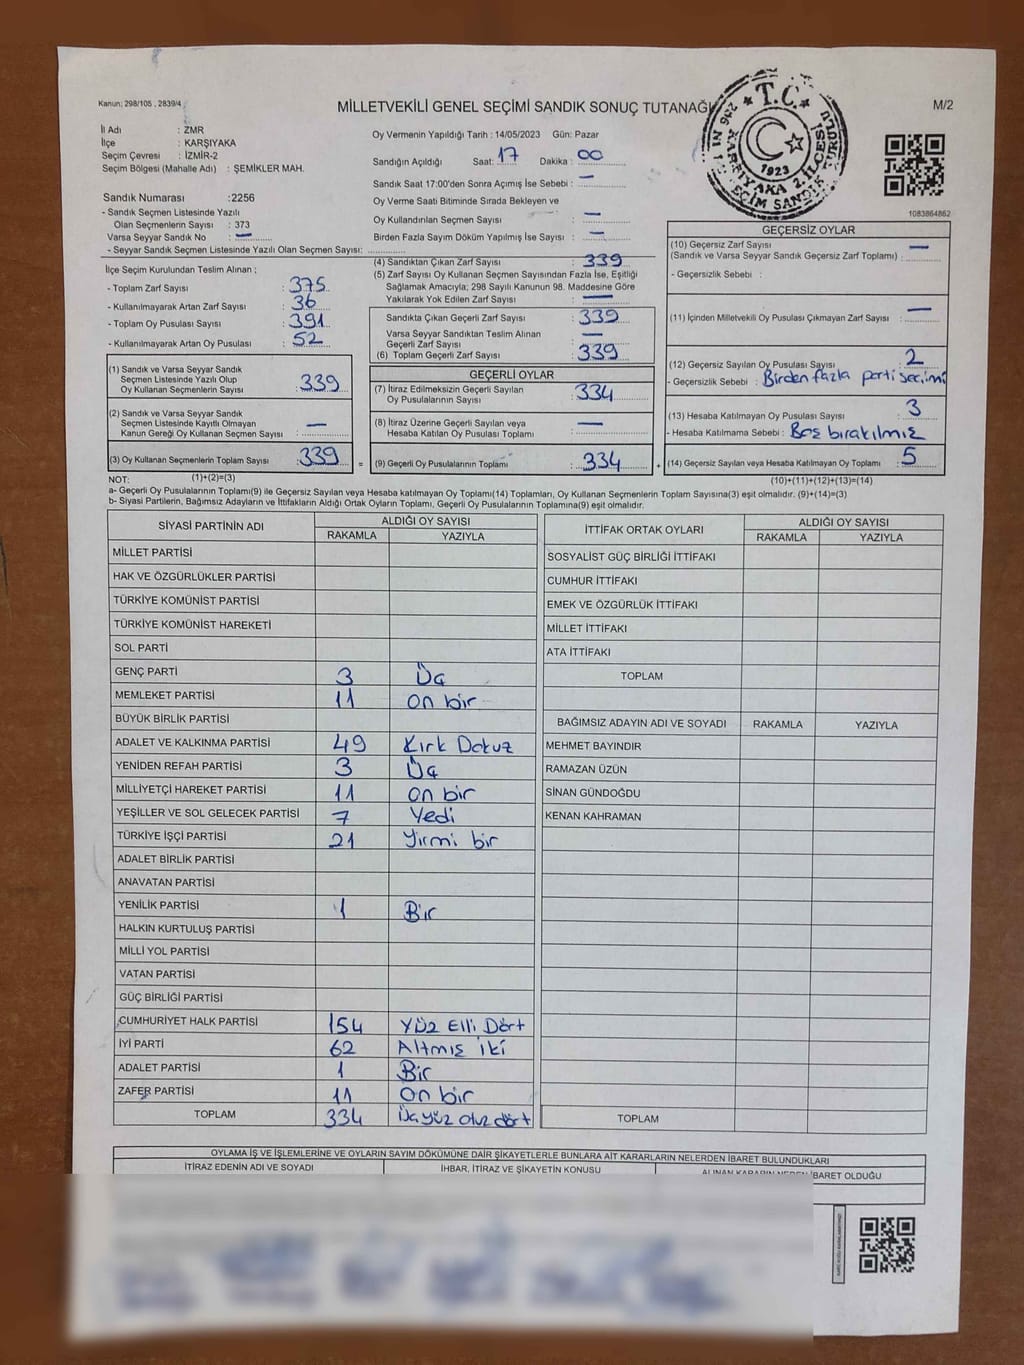 Kanun; 298/105 , 2839/4
MİLLETVEKİLİ GENEL SEÇİMİ SANDIK SONUÇ TUTANAĞI
M/2
İl Adı : ZMR
İlçe : KARŞIYAKA
Seçim Çevresi : İZMİR-2
Seçim Bölgesi (Mahalle Adı) : ŞEMİKLER MAH.
Oy Vermenin Yapıldığı Tarih : 14/05/2023 Gün: Pazar
Sandığın Açıldığı Saat: 17 Dakika : 00
Sandık Saat 17:00'den Sonra Açımış İse Sebebi : —
Oy Verme Saati Bitiminde Sırada Bekleyen ve
Oy Kullandırılan Seçmen Sayısı : —
Birden Fazla Sayım Döküm Yapılmış İse Sayısı : —
T.C.
1923
KARŞIYAKA 2.İLÇE SEÇİM SANDIK KURULU
1083864862
Sandık Numarası :2256
- Sandık Seçmen Listesinde Yazılı
Olan Seçmenlerin Sayısı : 373
Varsa Seyyar Sandık No : —
- Seyyar Sandık Seçmen Listesinde Yazılı Olan Seçmen Sayısı:
İlçe Seçim Kurulundan Teslim Alınan ;
- Toplam Zarf Sayısı : 375
- Kullanılmayarak Artan Zarf Sayısı : 36
- Toplam Oy Pusulası Sayısı : 391
- Kullanılmayarak Artan Oy Pusulası : 52
(1) Sandık ve Varsa Seyyar Sandık
Seçmen Listesinde Yazılı Olup
Oy Kullanan Seçmenlerin Sayısı : 339
(2) Sandık ve Varsa Seyyar Sandık
Seçmen Listesinde Kayıtlı Olmayan
Kanun Gereği Oy Kullanan Seçmen Sayısı : —
(3) Oy Kullanan Seçmenlerin Toplam Sayısı : 339
(1)+(2)=(3)
(4) Sandıktan Çıkan Zarf Sayısı : 339
(5) Zarf Sayısı Oy Kullanan Seçmen Sayısından Fazla İse, Eşitliği
Sağlamak Amacıyla; 298 Sayılı Kanunun 98. Maddesine Göre
Yakılarak Yok Edilen Zarf Sayısı : —
Sandıkta Çıkan Geçerli Zarf Sayısı : 339
Varsa Seyyar Sandıktan Teslim Alınan
Geçerli Zarf Sayısı : —
(6) Toplam Geçerli Zarf Sayısı : 339
GEÇERLİ OYLAR
(7) İtiraz Edilmeksizin Geçerli Sayılan
Oy Pusulalarının Sayısı : 334
(8) İtiraz Üzerine Geçerli Sayılan veya
Hesaba Katılan Oy Pusulası Toplamı : —
= (9) Geçerli Oy Pusulalarının Toplamı : 334
GEÇERSİZ OYLAR
(10) Geçersiz Zarf Sayısı —
(Sandık ve Varsa Seyyar Sandık Geçersiz Zarf Toplamı) :
- Geçersizlik Sebebi :
(11) İçinden Milletvekili Oy Pusulası Çıkmayan Zarf Sayısı : —
(12) Geçersiz Sayılan Oy Pusulası Sayısı : 2
- Geçersizlik Sebebi : Birden fazla parti seçimi
(13) Hesaba Katılmayan Oy Pusulası Sayısı : 3
- Hesaba Katılmama Sebebi : Boş bırakılmış
+ (14) Geçersiz Sayılan veya Hesaba Katılmayan Oy Toplamı : 5
(10)+(11)+(12)+(13)=(14)
NOT:
a- Geçerli Oy Pusulalarının Toplamı(9) ile Geçersiz Sayılan veya Hesaba katılmayan Oy Toplamı(14) Toplamları, Oy Kullanan Seçmenlerin Toplam Sayısına(3) eşit olmalıdır. (9)+(14)=(3)
b- Siyasi Partilerin, Bağımsız Adayların ve İttifakların Aldığı Ortak Oyların Toplamı, Geçerli Oy Pusulalarının Toplamına(9) eşit olmalıdır.
SİYASİ PARTİNİN ADI ALDIĞI OY SAYISI
RAKAMLA YAZIYLA
MİLLET PARTİSİ
HAK VE ÖZGÜRLÜKLER PARTİSİ
TÜRKİYE KOMÜNİST PARTİSİ
TÜRKİYE KOMÜNİST HAREKETİ
SOL PARTİ
GENÇ PARTİ 3 Üç
MEMLEKET PARTİSİ 11 On bir
BÜYÜK BİRLİK PARTİSİ
ADALET VE KALKINMA PARTİSİ 49 Kırk Dokuz
YENİDEN REFAH PARTİSİ 3 Üç
MİLLİYETÇİ HAREKET PARTİSİ 11 On bir
YEŞİLLER VE SOL GELECEK PARTİSİ 7 Yedi
TÜRKİYE İŞÇİ PARTİSİ 21 Yirmi bir
ADALET BİRLİK PARTİSİ
ANAVATAN PARTİSİ
YENİLİK PARTİSİ 1 Bir
HALKIN KURTULUŞ PARTİSİ
MİLLİ YOL PARTİSİ
VATAN PARTİSİ
GÜÇ BİRLİĞİ PARTİSİ
CUMHURİYET HALK PARTİSİ 154 Yüz Elli Dört
İYİ PARTİ 62 Altmış iki
ADALET PARTİSİ 1 Bir
ZAFER PARTİSİ 11 On bir
TOPLAM 334 Üçyüz otuz dört
İTTİFAK ORTAK OYLARI ALDIĞI OY SAYISI
RAKAMLA YAZIYLA
SOSYALİST GÜÇ BİRLİĞİ İTTİFAKI
CUMHUR İTTİFAKI
EMEK VE ÖZGÜRLÜK İTTİFAKI
MİLLET İTTİFAKI
ATA İTTİFAKI
TOPLAM
BAĞIMSIZ ADAYIN ADI VE SOYADI RAKAMLA YAZIYLA
MEHMET BAYINDIR
RAMAZAN ÜZÜN
SİNAN GÜNDOĞDU
KENAN KAHRAMAN
TOPLAM
OYLAMA İŞ VE İŞLEMLERİNE VE OYLARIN SAYIM DÖKÜMÜNE DAİR ŞİKAYETLERLE BUNLARA AİT KARARLARIN NELERDEN İBARET BULUNDUKLARI
İTİRAZ EDENİN ADI VE SOYADI İHBAR, İTİRAZ VE ŞİKAYETİN KONUSU ALINAN KARARIN NEDEN İBARET OLDUĞU